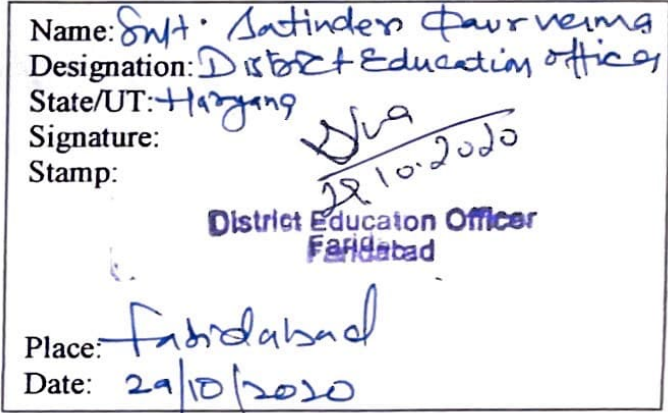 Name: Smt. Satinder Kaur verma
Designation: District Education officer
State/UT: Haryana
Signature:
29.10.2020
Stamp:
District Educaton Officer
Faridabad
Place: Faridabad
Date: 29/10/2020